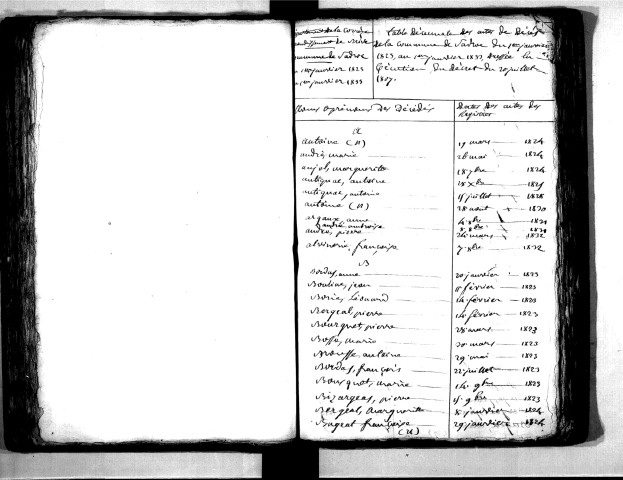 Département de la Corrèze
arrondissement de Brive
commune de Sadroc
1er janvier 1823
1er janvier 1833
Table Décennale des actes de Décès
de la commune de Sadroc du 1er janvier
1823, au 1er janvier 1833, dressée en
Exécution du décret du 20 juillet
1807.
Noms et prénoms des Décédés
Dates des actes des Registres
A
antoine (N) 17 mars 1824
andré, marie 26 mai 1824
anjol, marguerite 18 7bre 1824
antignac, antoine 18 Xbre 1825
antignac, antoine 15 juillet 1828
antoine (N) 28 août 1830
argaux, anne 14 8bre 1831
andré, ambroise 8 8bre 1831
andré, pierre 24 mars 1832
alvinerie, françoise 7 8bre 1832
B
Bordas, anne 20 janvier 1823
Boulias, jean 8 février 1823
Borie, Léonard 14 février 1823
Bergeal, pierre 14 février 1823
Bourguet, pierre 28 mars 1823
Bosse, marie 30 mars 1823
Brousse, antoine 29 mai 1823
Bordas, françois 22 juillet 1823
Bousquet, marie 14 9bre 1823
Bizargeas, pierre 15 9bre 1823
Bergeal, Marguerite 8 janvier 1824
Bugeat françoise 29 janvier 1824
(N)